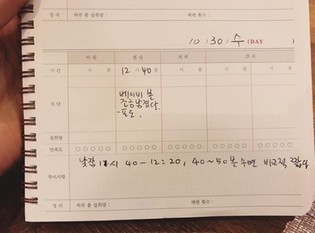 정리 하루 총 섭취량 : 배변 횟수 :
10 . 30 . 수 (DAY )
아침 점심 저녁 간식
시간 시 분 12 시 40분 시 분 시 분 시 분
식단 베이비 본
조금 남겼다.
- 포도.
섭취량
만족도
낮잠 11시 40 - 12:20, 40~50분 수면 비교적 짧다
특이사항
정리 하루 총 섭취량 : 배변 횟수 :